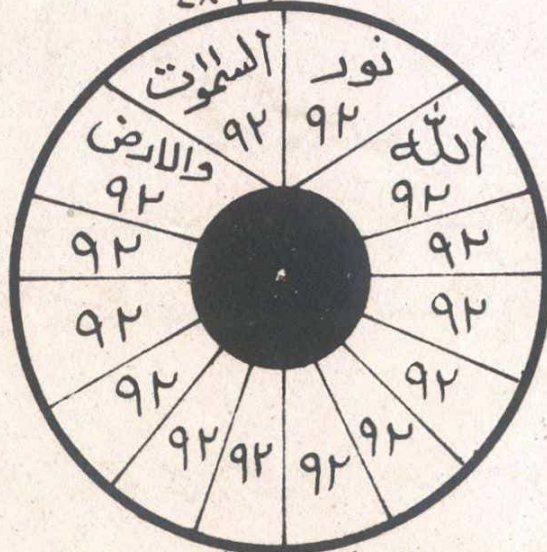 الله
۹۲
نور
۹۲
السمٰوٰت
۹۲
والارض
۹۲
۹۲
۹۲
۹۲
۹۲
۹۲
۹۲
۹۲
۹۲
۹۲
۹۲